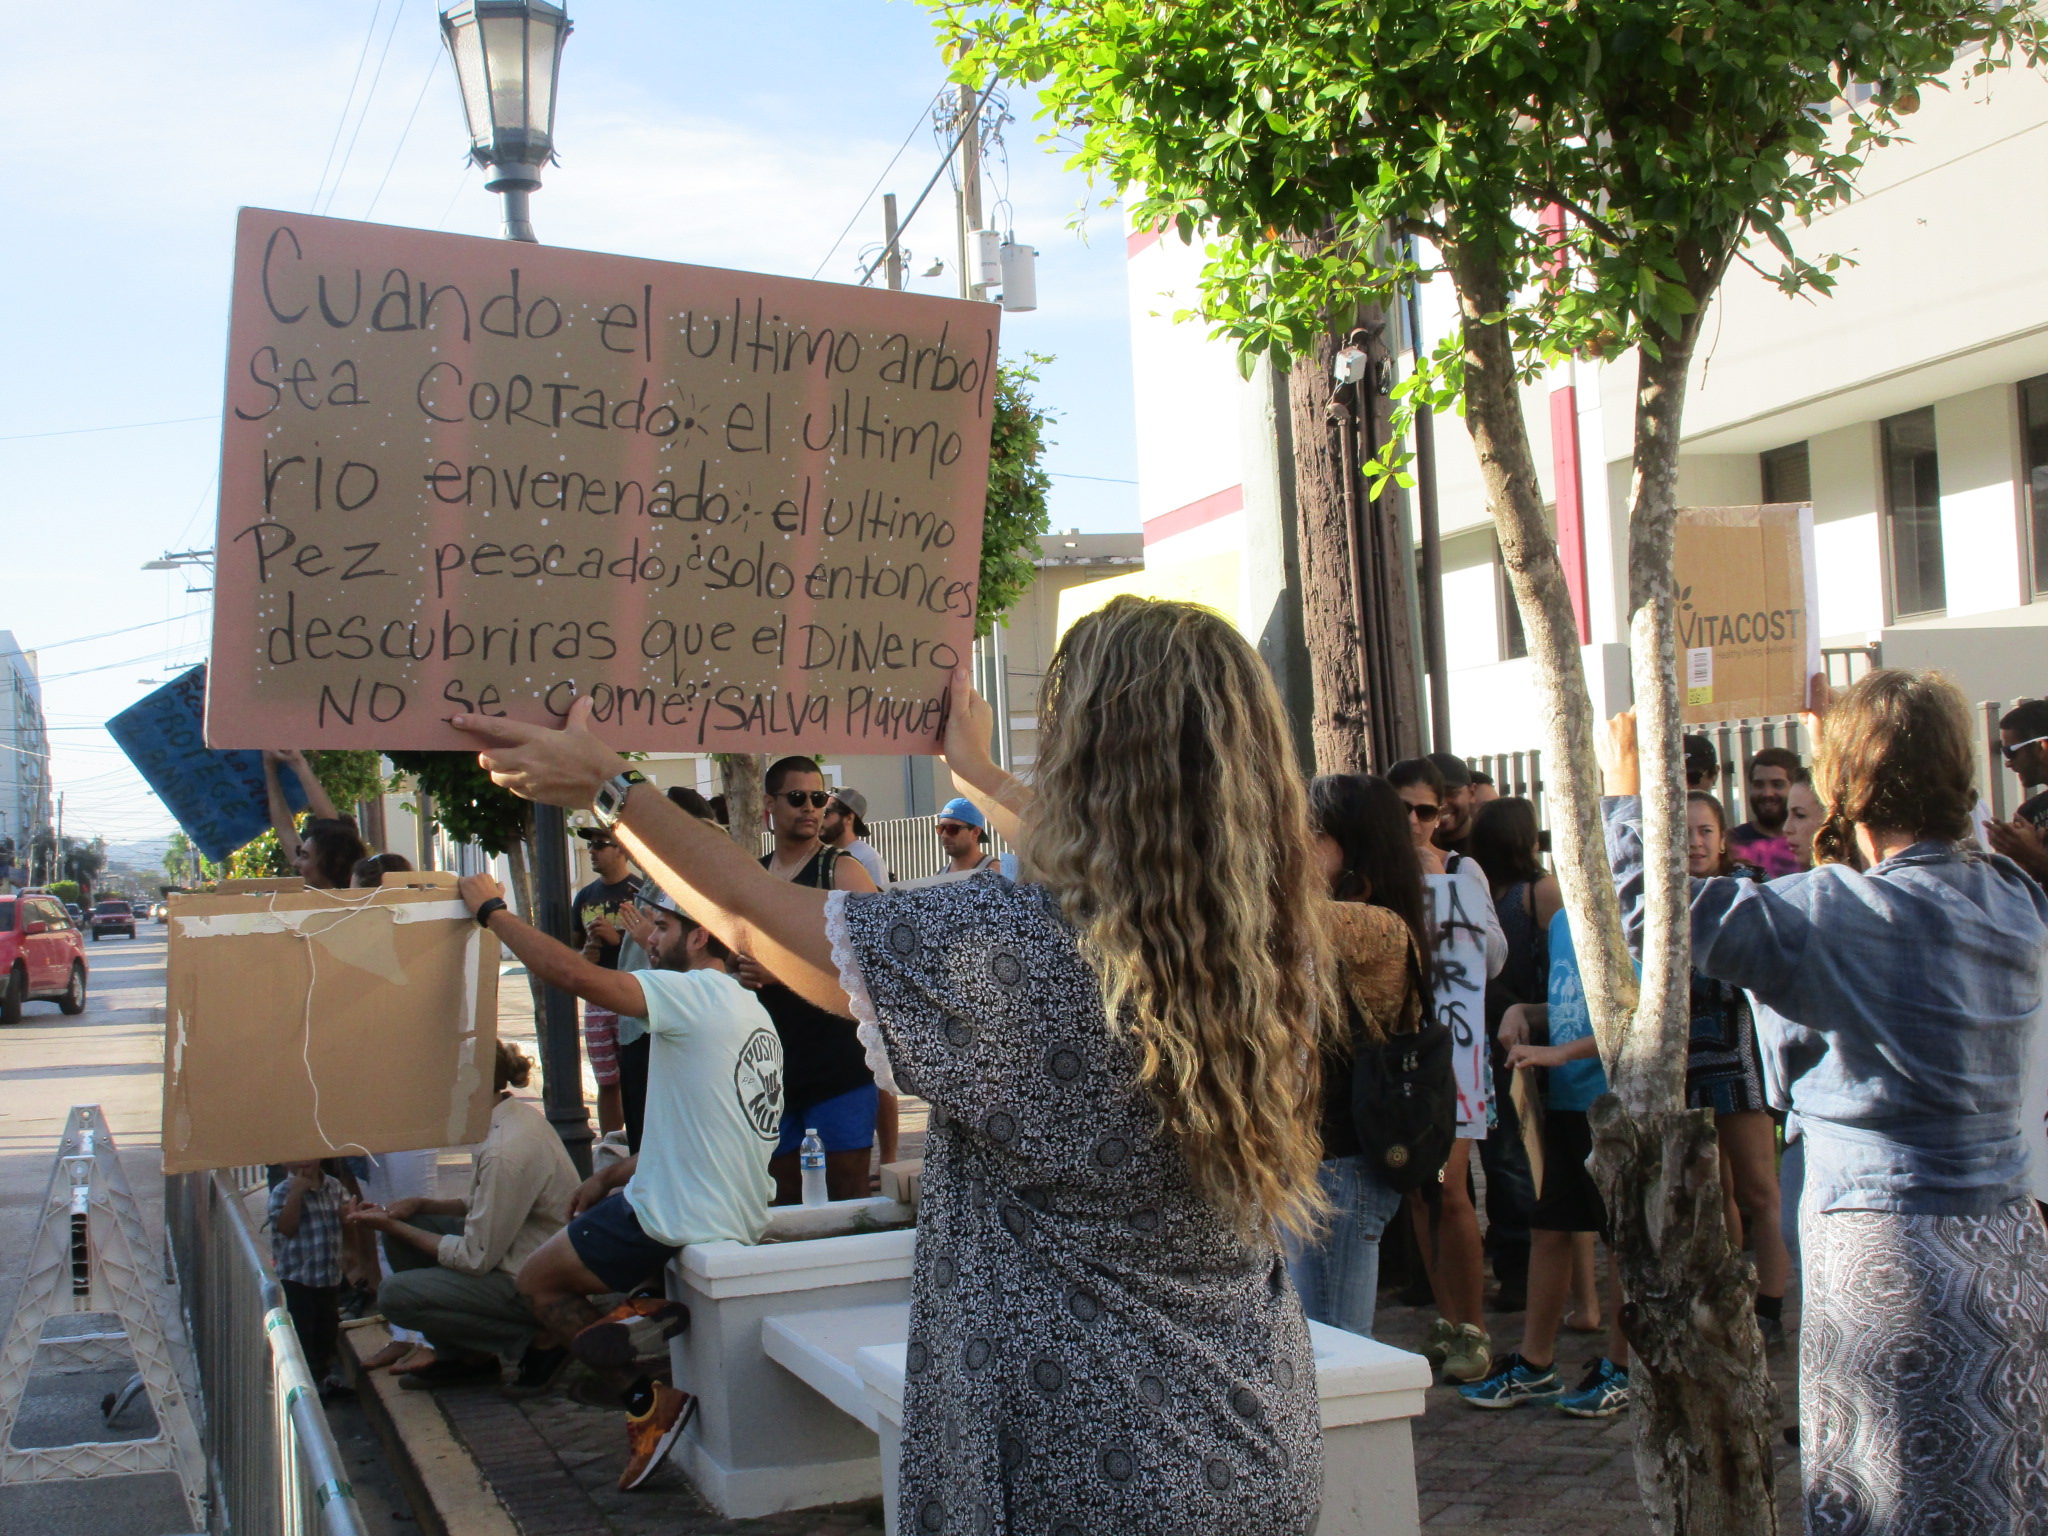 Cuando el ultimo arbol
sea CORTado el ultimo
rio envenenado el ultimo
Pez pescado, ¿solo entonces
descubriras que el DiNero
NO se come? ¡SALVa Playuel
PROTEGE
VITACOST
healthy living, delivered
POSIT
MUS
A